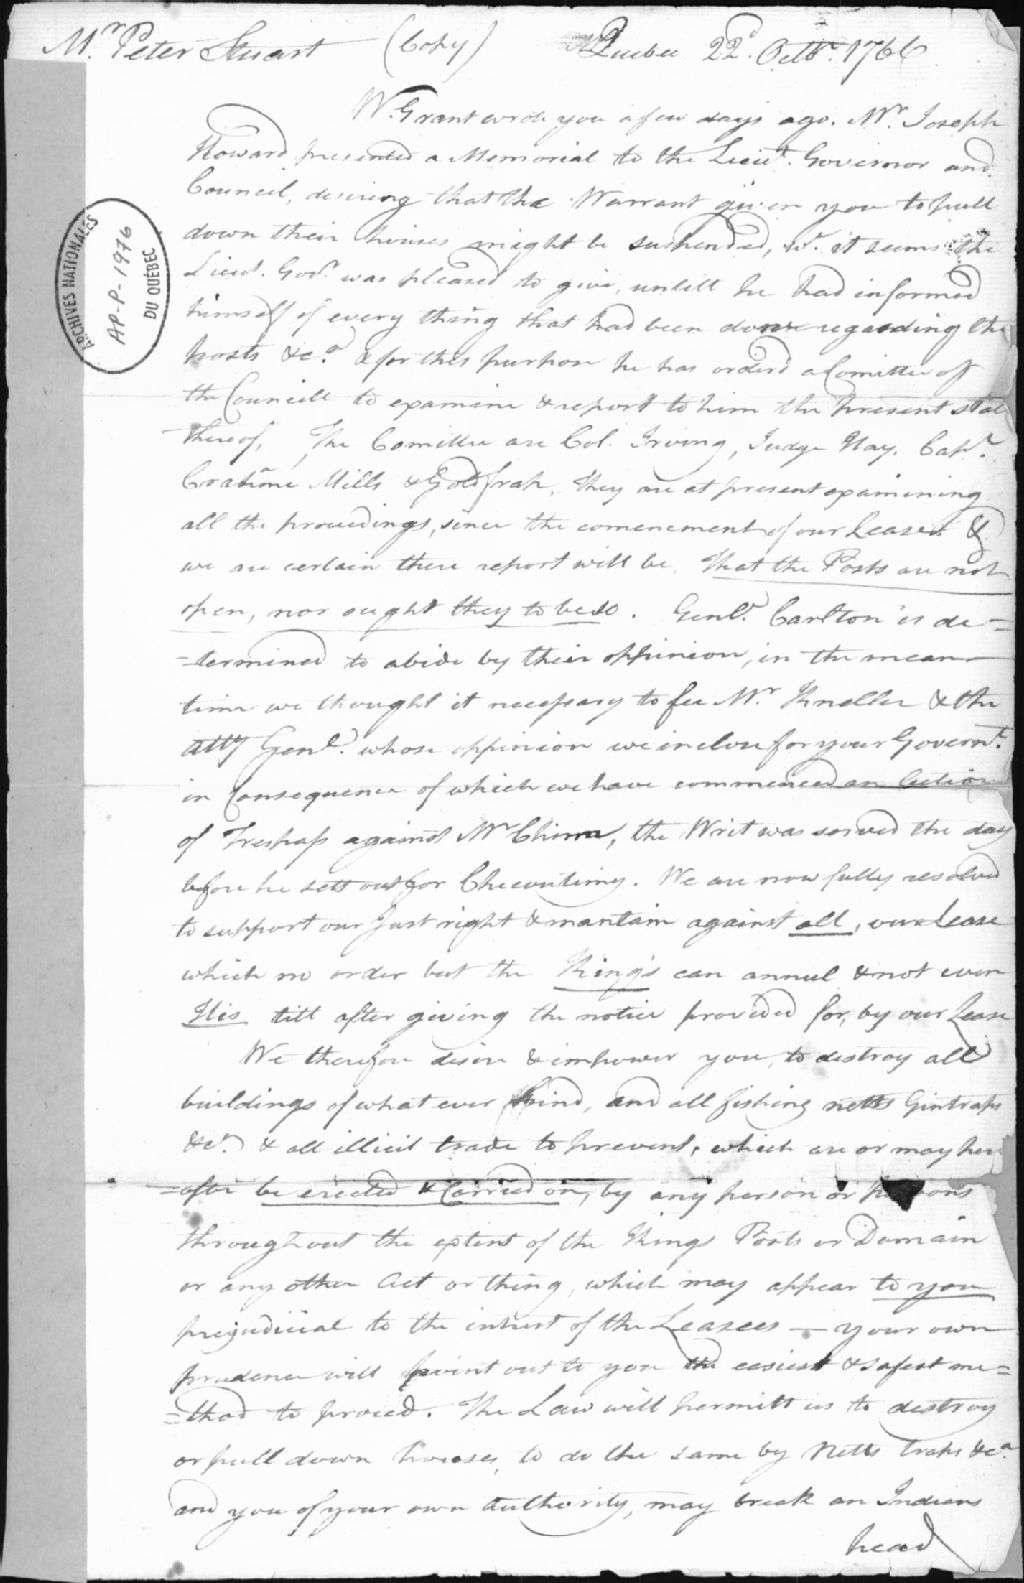 Mr. Peter Stuart (Copy) Quebec 22d. Octbr. 1766
W. Grant wrote you a few days ago. Mr. Joseph
Howard presented a Memorial to the Lieut. Governor and
Council, desiring that the Warrant given you to pull
down their houses might be suspended, wh. it seems the
Lieut. Govr. was pleased to give, untill he had informed
himself of every thing that had been done regarding the
posts &c.a & for this purpose he has orderd a Comittee of
the Councill to examine & report to him the present state
thereof, The Comittee are Col. Irving, Judge Hay, Capt.
Crabtime Mills & Goldfrap, They are at present examining
all the proceedings, since the comencement of our Leases &
we are certain there report will be, That the Posts are not
open, nor ought they to be so. Genl. Carlton is de=
=termined to abide by their oppinion, in the mean
time we thought it necessary to fee Mr. Kneller & the
atty Genl. whose oppinion we inclose for your Governt.
in Consequence of which we have commenced an action
of Trespass against Mr Chinn, the Writ was served the day
before he sett out for Checoutimy. We are now fully resolved
to support our just right & mantain against all, our Lease
which no order but the King's can annul & not even
His till after giving the notice provided for, by our Lease
We therefore desire & impower you, to destroy all
buildings of what ever kind, and all fishing netts Gintraps
&c. & all illicit trade to prevent, which are or may here
=after be erected & Carried on, by any person or persons
throughout the extent of the Kings Posts or Domain
or any other Act or thing, which may appear to you
prejudicial to the intrest of the Leasees — your own
prudence will point out to you the easiest & safest me=
=thod to proceed. The Law will permitt us to destroy
or pull down houses, to do the same by Netts traps &c.a
and you of your own authority, may break an Indians
head
ARCHIVES NATIONALES
AP-P-1976
DU QUÉBEC